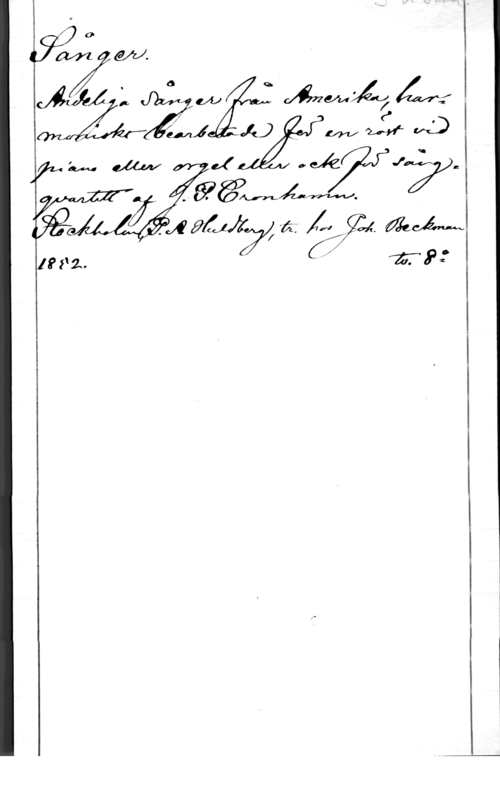 Sånger.
Andeliga Sånger från Amerika, har-
moniskt bearbetade för en röst vid
piano eller orgel eller ock för sång-
qvartett af J. P. Cronhamn.
Stockholm, P. A. Huldberg, tr. hos Joh. Beckman
1852. 8:o